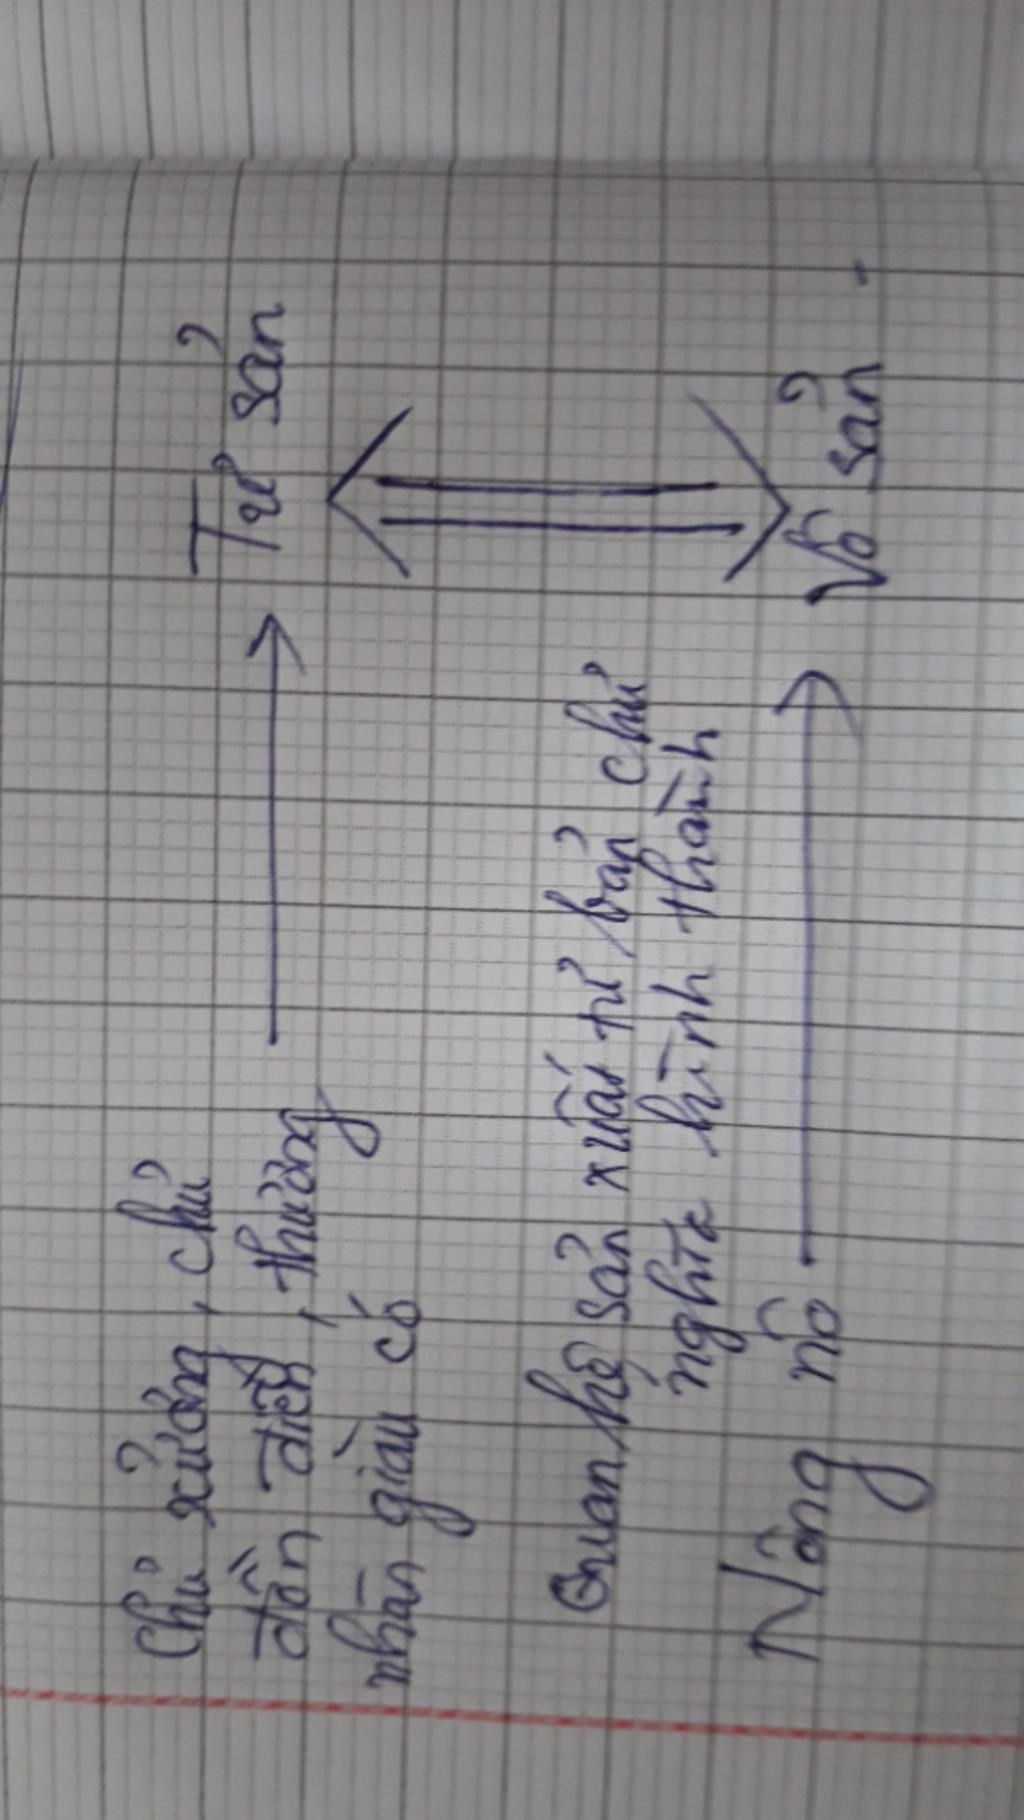 Chủ xưởng, chủ
đồn điền, thương
nhân giàu có
Tư sản
Quan hệ sản xuất tư bản chủ
nghĩa hình thành
Nông nô
Vô sản.